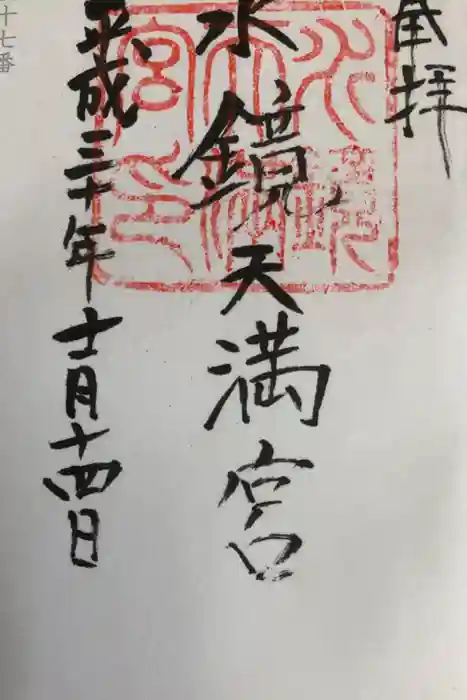 奉拝
水鏡天満宮
平成三十年十一月十四日
十七番